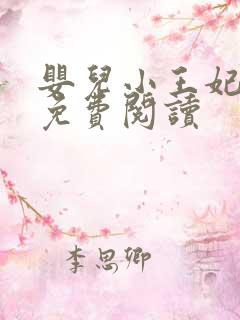 嬰兒小王妃
免費閱讀
李思卿